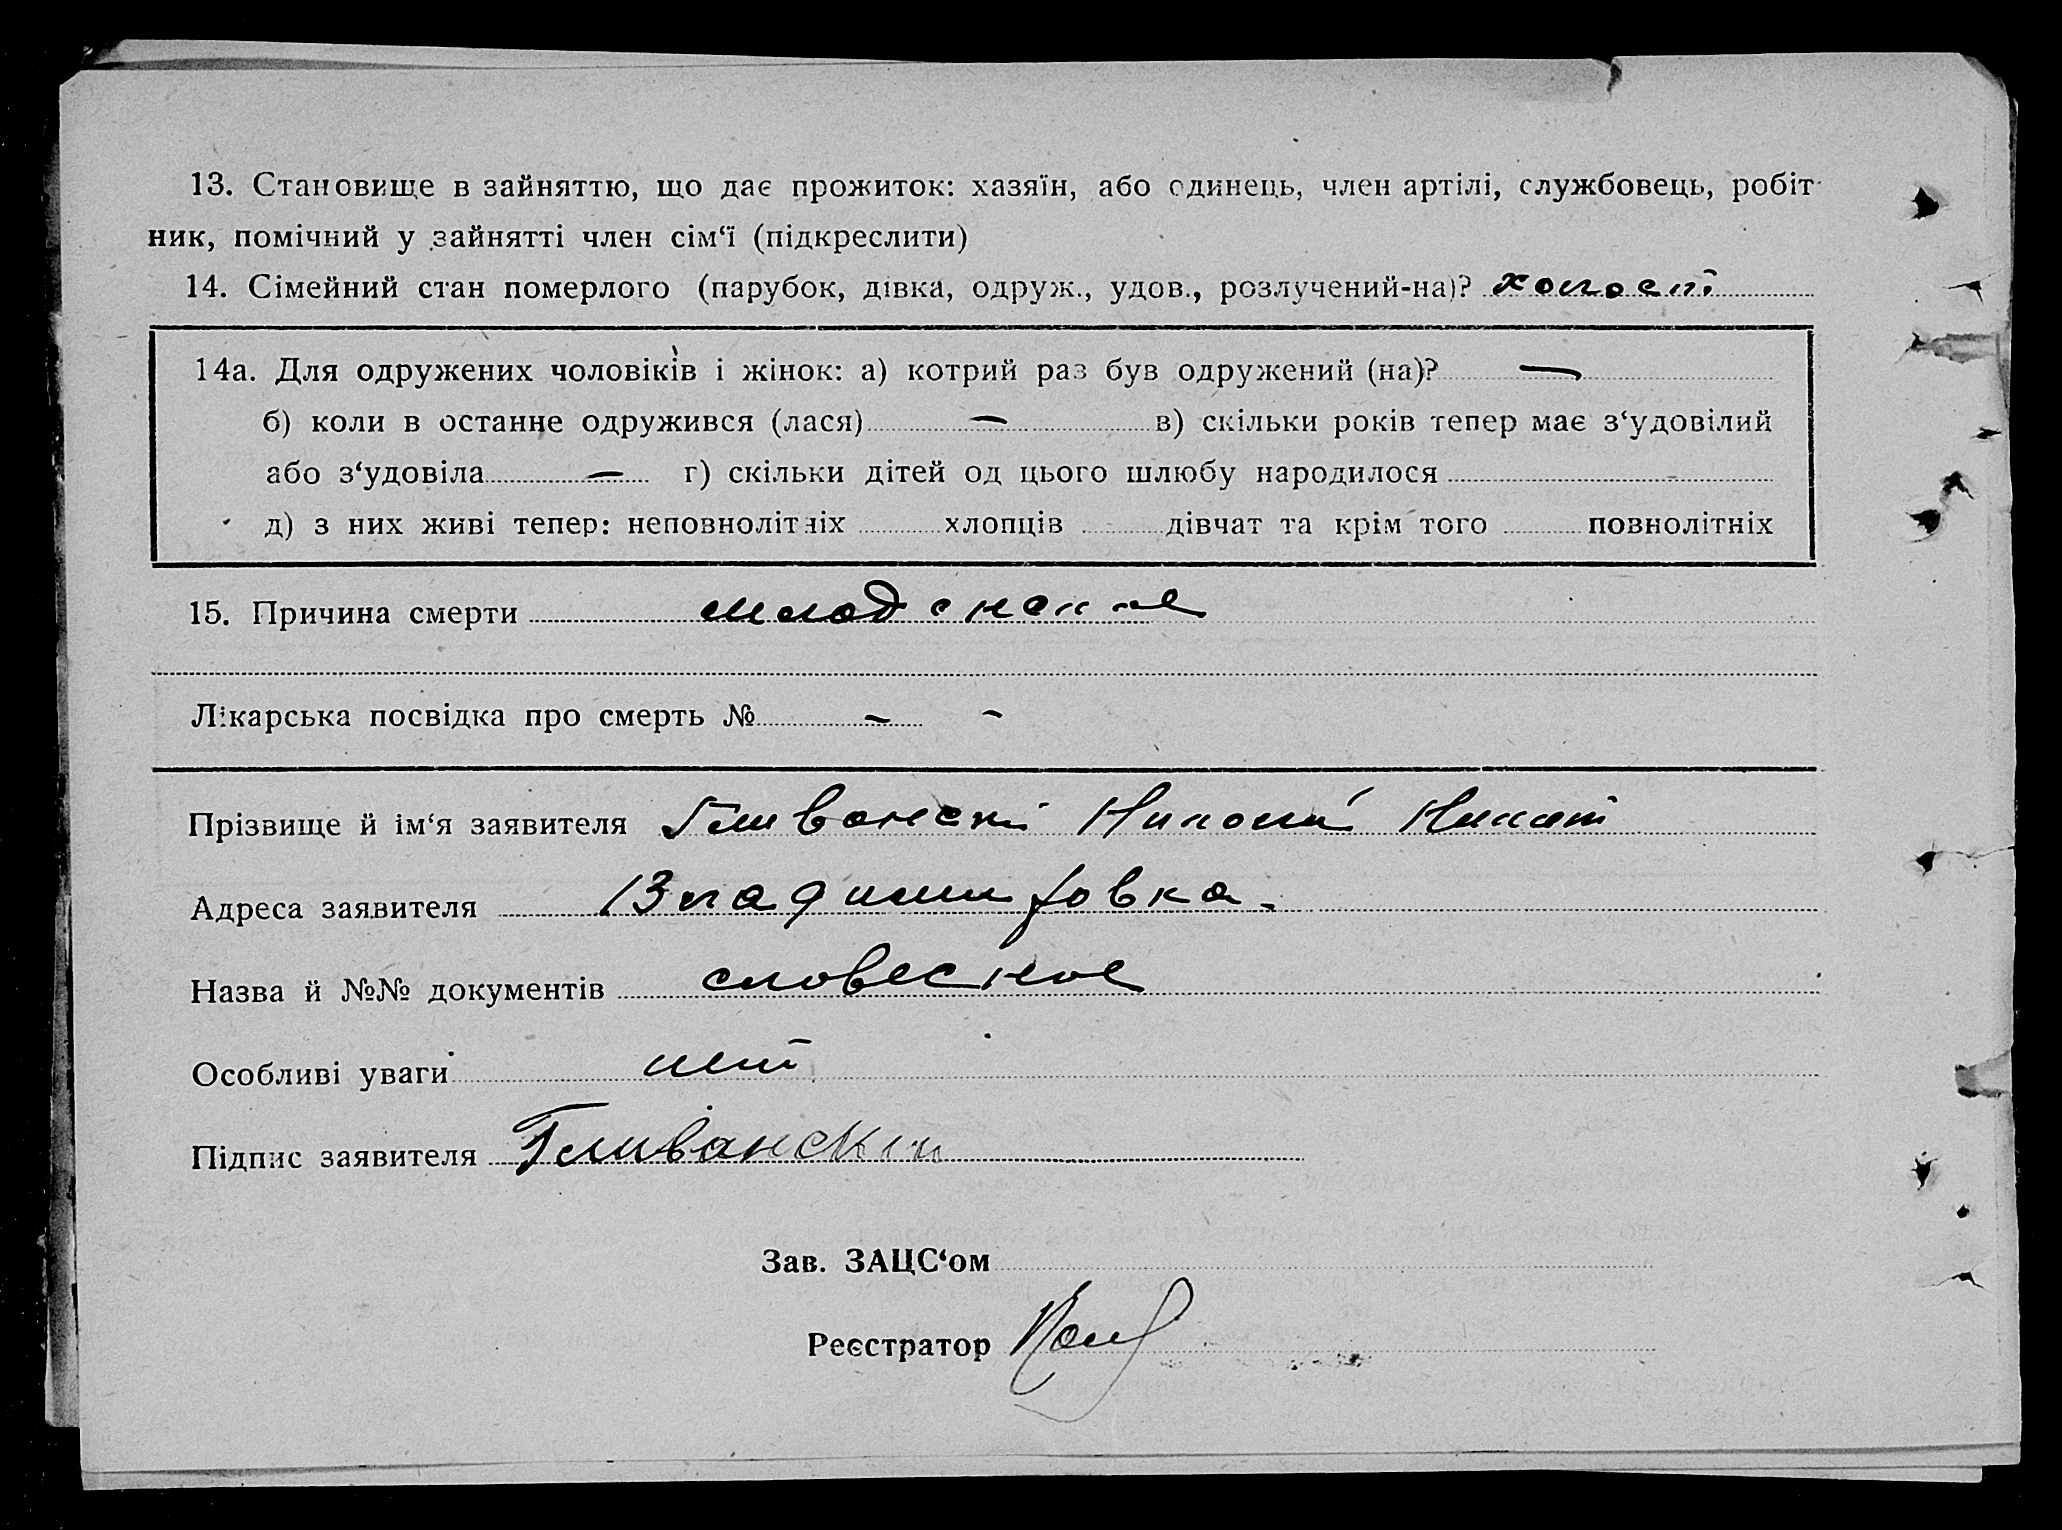 13. Становище в зайняттю, що дає прожиток: хазяїн, або одинець, член артілі, службовець, робіт-
ник, помічний у зайнятті член сім‘ї (підкреслити)
14. Сімейний стан померлого (парубок, дівка, одруж., удов., розлучений-на)? холост
14а. Для одружених чоловіків і жінок: а) котрий раз був одружений (на)? —
б) коли в останне одружився (лася) — в) скільки років тепер має з‘удовілий
або з‘удовіла — г) скільки дітей од цього шлюбу народилося
д) з них живі тепер: неповнолітніх хлопців дівчат та крім того повнолітніх
15. Причина смерти младенская
Лікарська посвідка про смерть № — -
Прізвище й ім‘я заявителя Гливанский Николай
Адреса заявителя Владимировка.
Назва й №№ документів словесное
Особливі уваги нет
Підпис заявителя Гливанский
Зав. ЗАЦС‘ом
Реєстратор